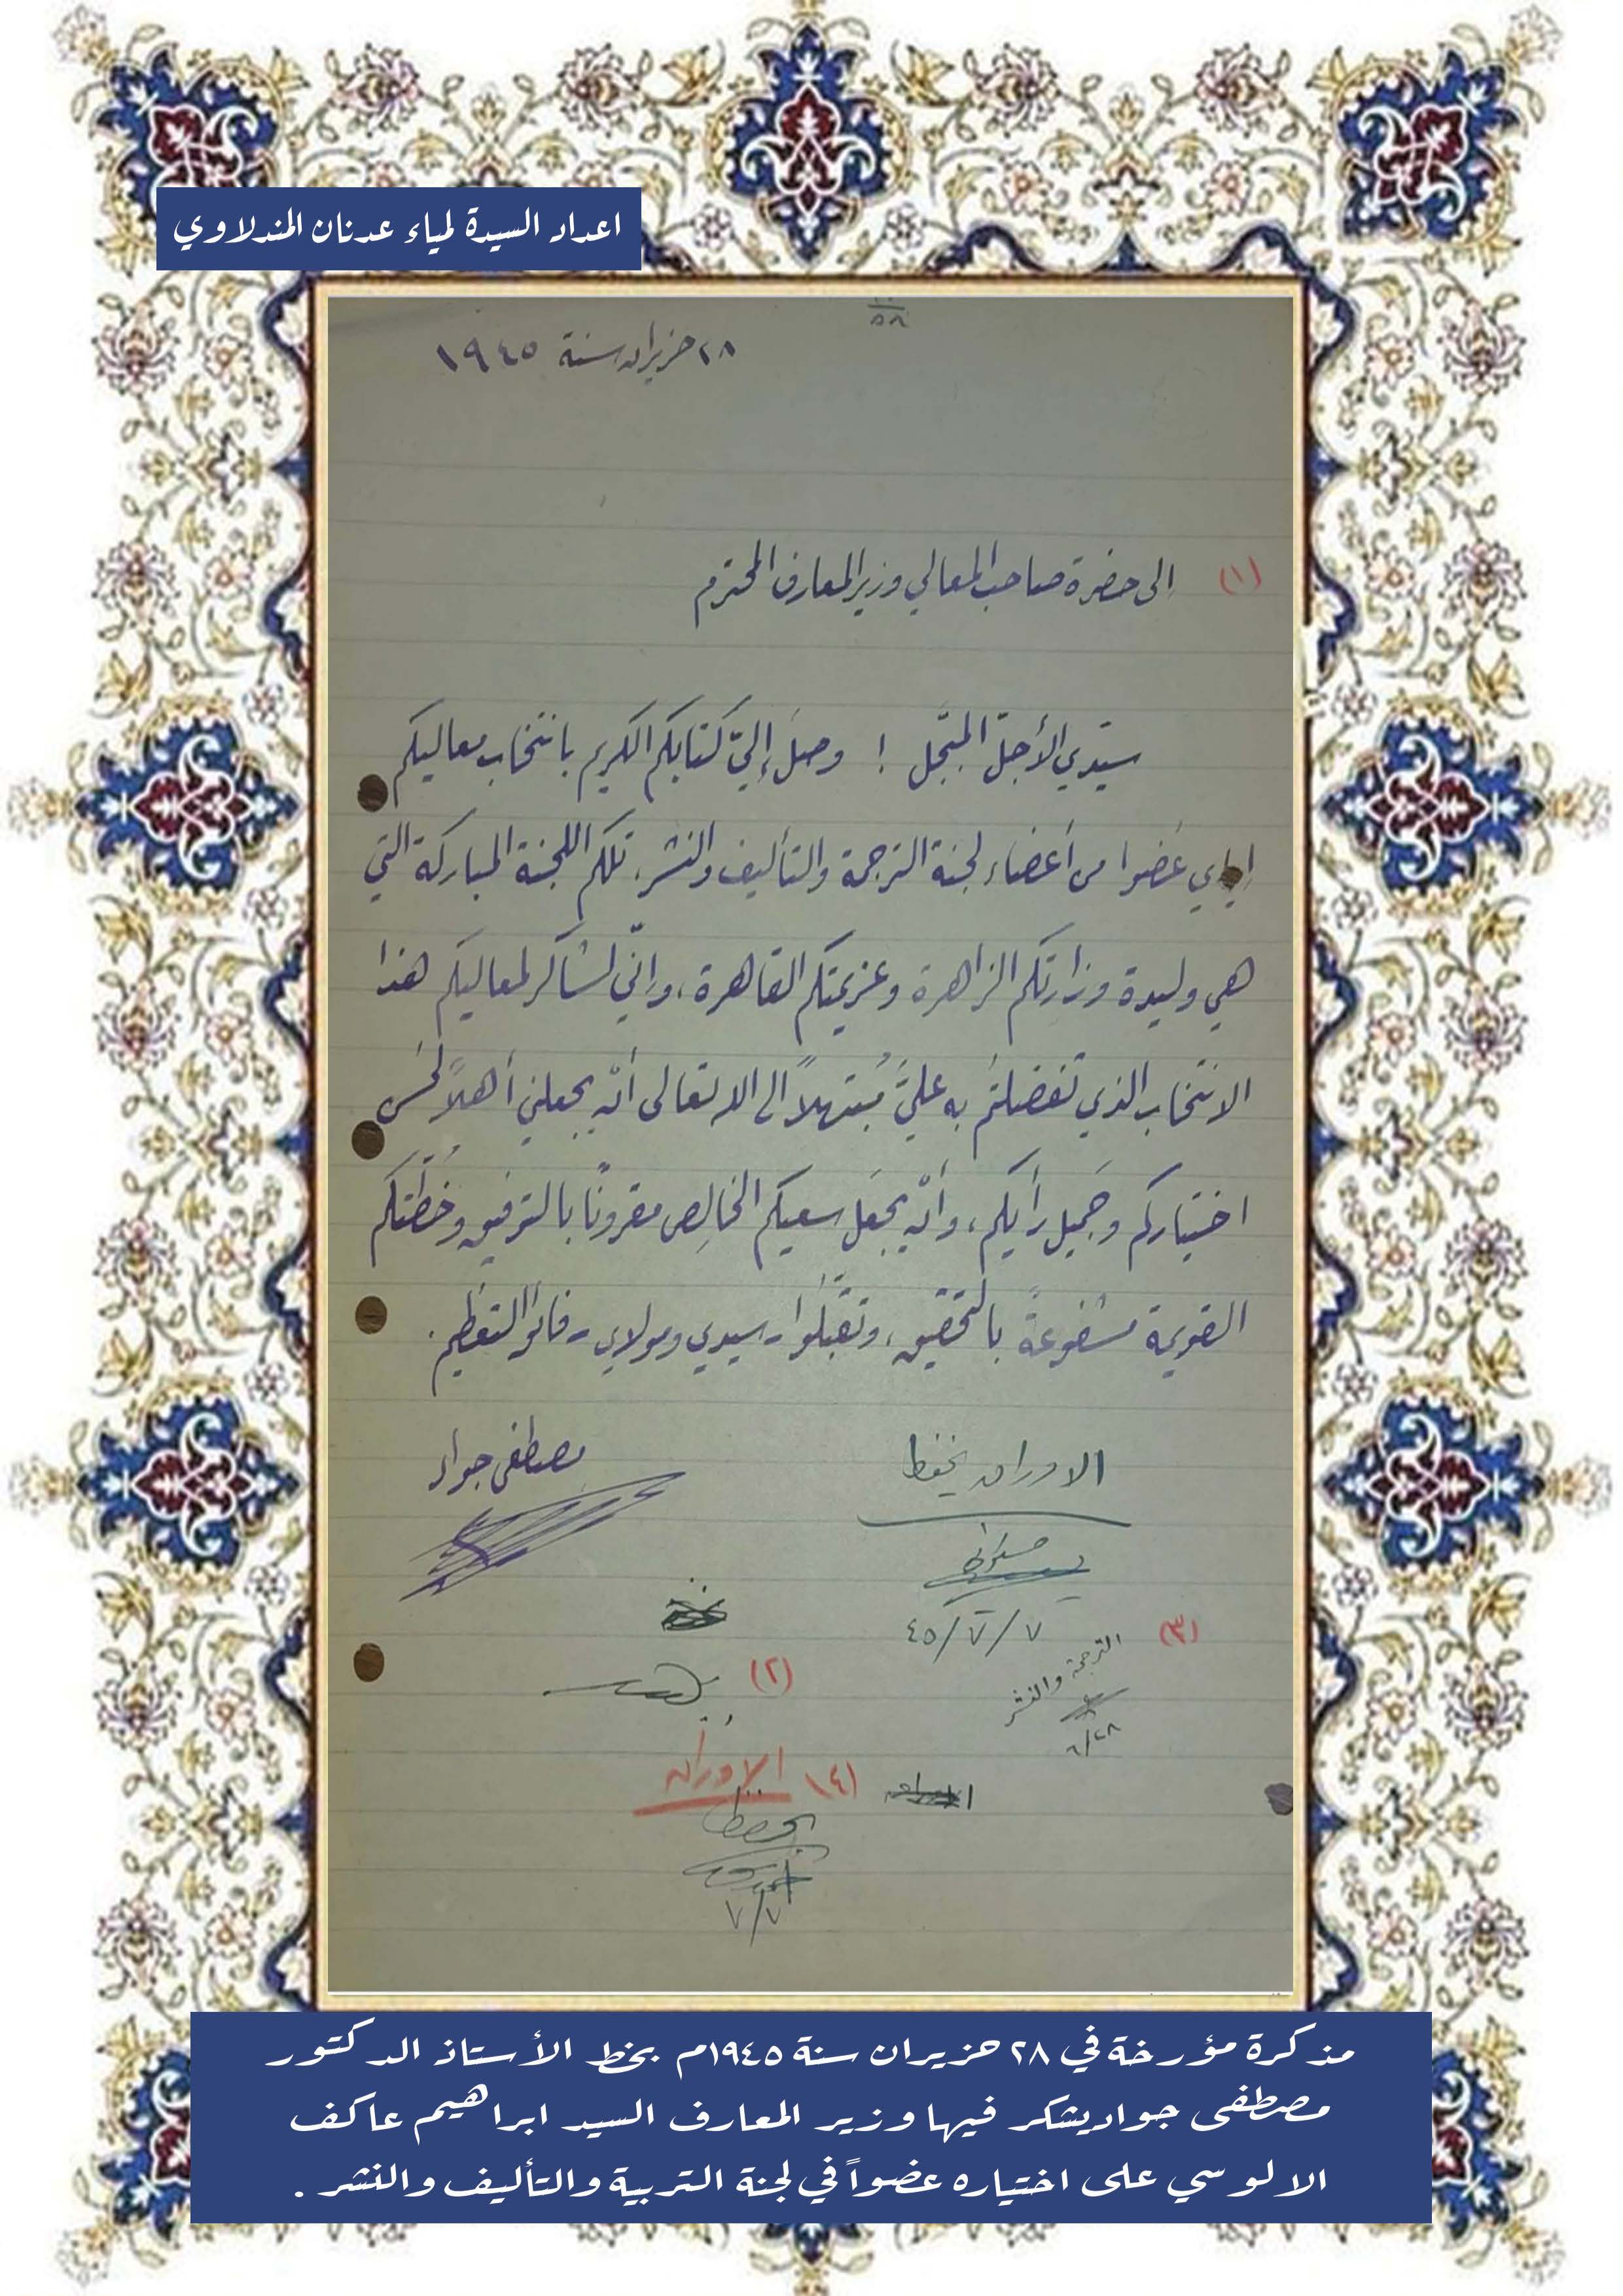 اعداد السيدة لمياء عدنان المندلاوي
٥٨
٢٨ حزيران سنة ١٩٤٥
(١) إلى حضرة صاحب المعالي وزير المعارف المحترم
سيّدي الأجلّ المبجَّل ! وصلَ إليّ كتابكم الكريم بانتخاب معاليكم
إياي عضوا من أعضاء لجنة الترجمة والتأليف والنشر، تلكم اللجنة المباركة التي
هي وليدة وزارتكم الزاهرة وعزيمتكم القاهرة، وإنّي لشاكر لمعاليكم هذا
الانتخاب الذي تفضلتُم به عليَّ مُبتهلاً الى الله تعالى أنْ يجعلني أهلاً لحُسن
اختياركم وجَميل رأيكم، وأنْ يجعَل سعيكم الخالِص مقرونًا بالتوفيق وخُطّتكم
القويمة مشفوعةً بالتحقيق، وتقبَّلوا - سيدي ومولاي - فائق التعظيم.
مصطفى جواد
الاوراق يحفظ
٤٥/٧/٧
(٣)
الترجمة والنشر
٦/٢٨
(٢)
(٤) الاوراق
يحفظ
٧/٧
مذكرة مؤرخة في ٢٨ حزيران سنة ١٩٤٥م بخط الأستاذ الدكتور
مصطفى جواد يشكر فيها وزير المعارف السيد ابراهيم عاكف
الالوسي على اختياره عضواً في لجنة التربية والتأليف والنشر .